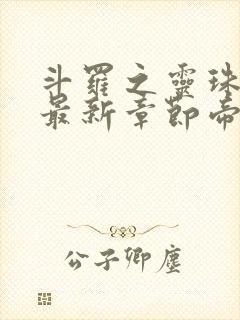 斗羅之靈珠
最新章節帝
公子卿塵